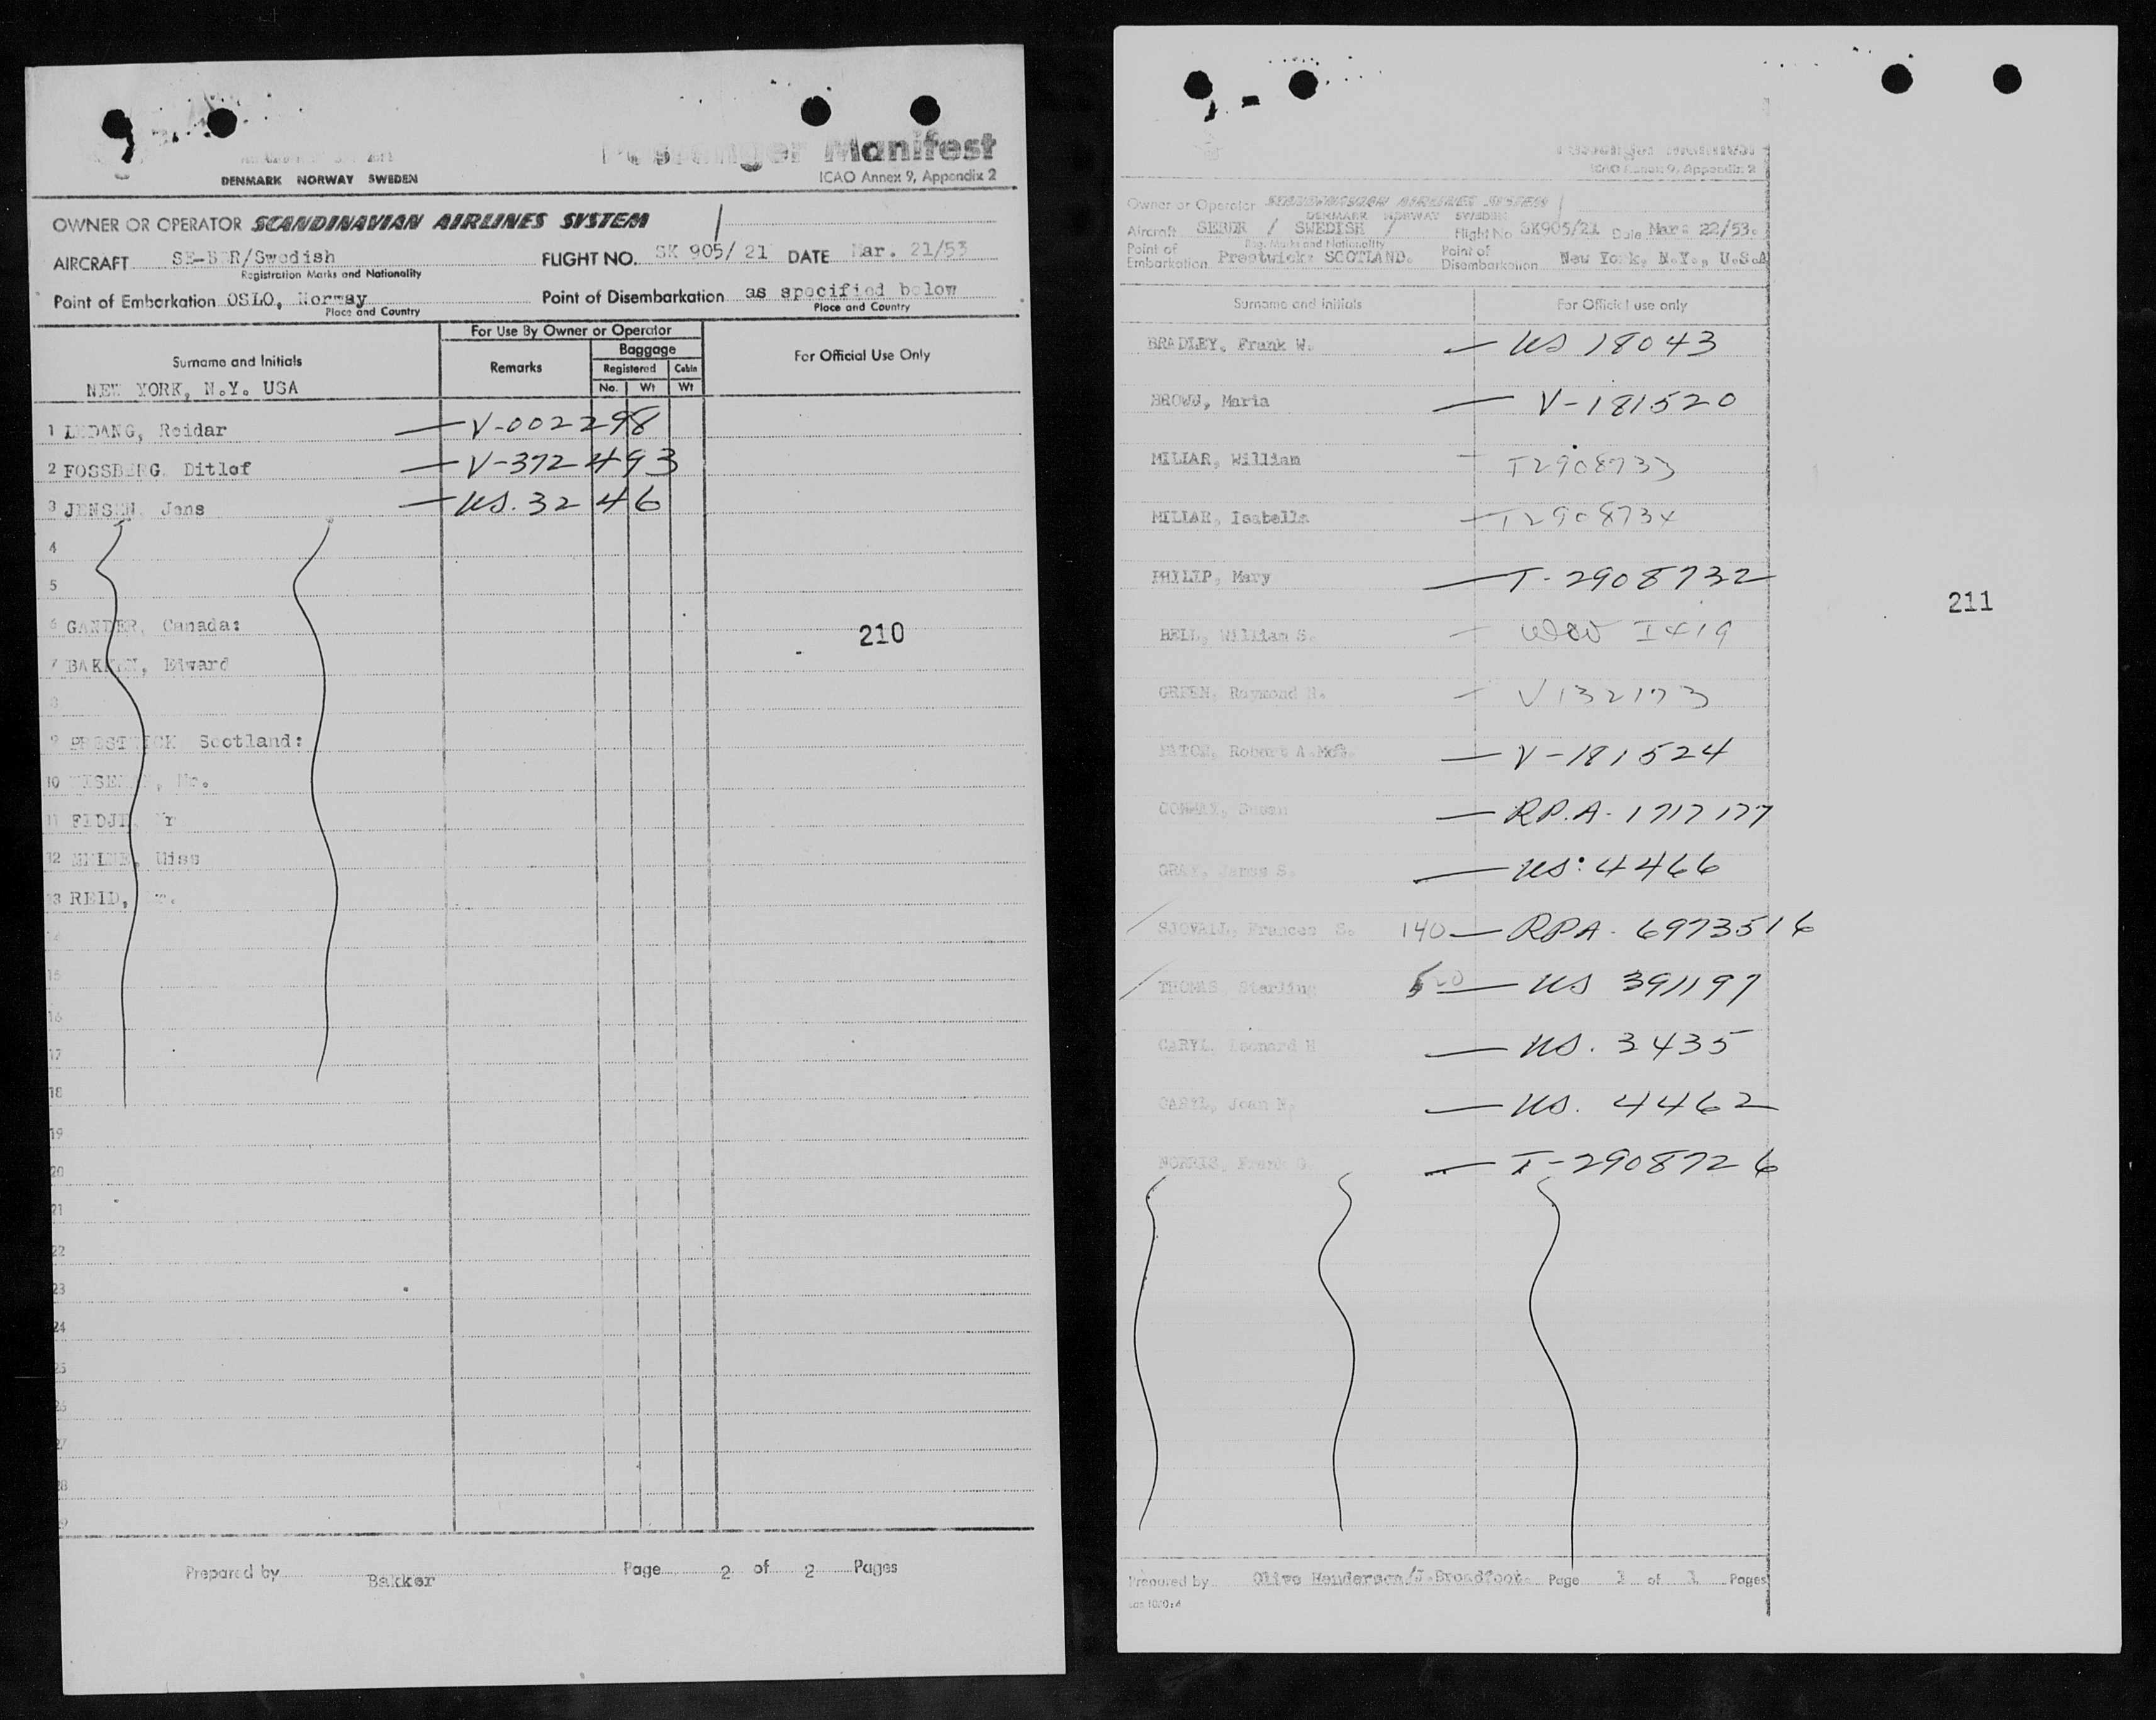 Passenger Manifest
DENMARK NORWAY SWEDEN
ICAO Annex 9, Appendix 2
OWNER OR OPERATOR SCANDINAVIAN AIRLINES SYSTEM
AIRCRAFT SE-BDR/Swedish FLIGHT NO. SK 905/ 21 DATE Mar. 21/53
Registration Marks and Nationality
Point of Embarkation OSLO, Norway Point of Disembarkation as specified below
Place and Country Place and Country
For Use By Owner or Operator
Surname and Initials Remarks Baggage For Official Use Only
Registered Cabin
No. Wt Wt
NEW YORK, N.Y. USA
1 Reidar V-002298
2 FOSSBERG, Ditlef V-372493
3 JENSEN, Jens US. 3246
4
5
6 GANDER, Canada:
7 Edward
8
9 PRESTWICK Scotland:
10
11
12 Miss
13 REID,
14
15
16
17
18
19
20
21
22
23
24
25
26
27
28
29
210
Prepared by Bakker Page 2 of 2 Pages
Passenger Manifest
ICAO Annex 9, Appendix 2
Owner or Operator SCANDINAVIAN AIRLINES SYSTEM
DENMARK NORWAY SWEDEN
Aircraft SEBDR / SWEDISH / Flight No. SK905/21 Date Mar: 22/53.
Reg. Marks and Nationality
Point of Embarkation Prestwick: SCOTLAND. Point of Disembarkation New York, N.Y., U.S.A
Surname and initials For Official use only
BRADLEY, Frank W. US 18043
BROWN, Maria V-181520
MILLAR, William T2908733
MILLAR, Isabella T2908734
PHILIP, Mary T-2908732
BELL, William S. I419
GREEN, Raymond H. V132173
PATON, Robert A.McG. V-181524
CONWAY, Susan RP.A. 1717177
GRAY, James S. US: 4466
SJOVALL, Frances S. 140 RPA. 6973516
THOMAS, Sterling US 391197
CARYL, Leonard H US. 3435
CARYL, Jean N. US. 4462
NORRIS, Frank G. T-2908726
211
Prepared by Olive Henderson/J.Broadfoot. Page 1 of 1 Pages